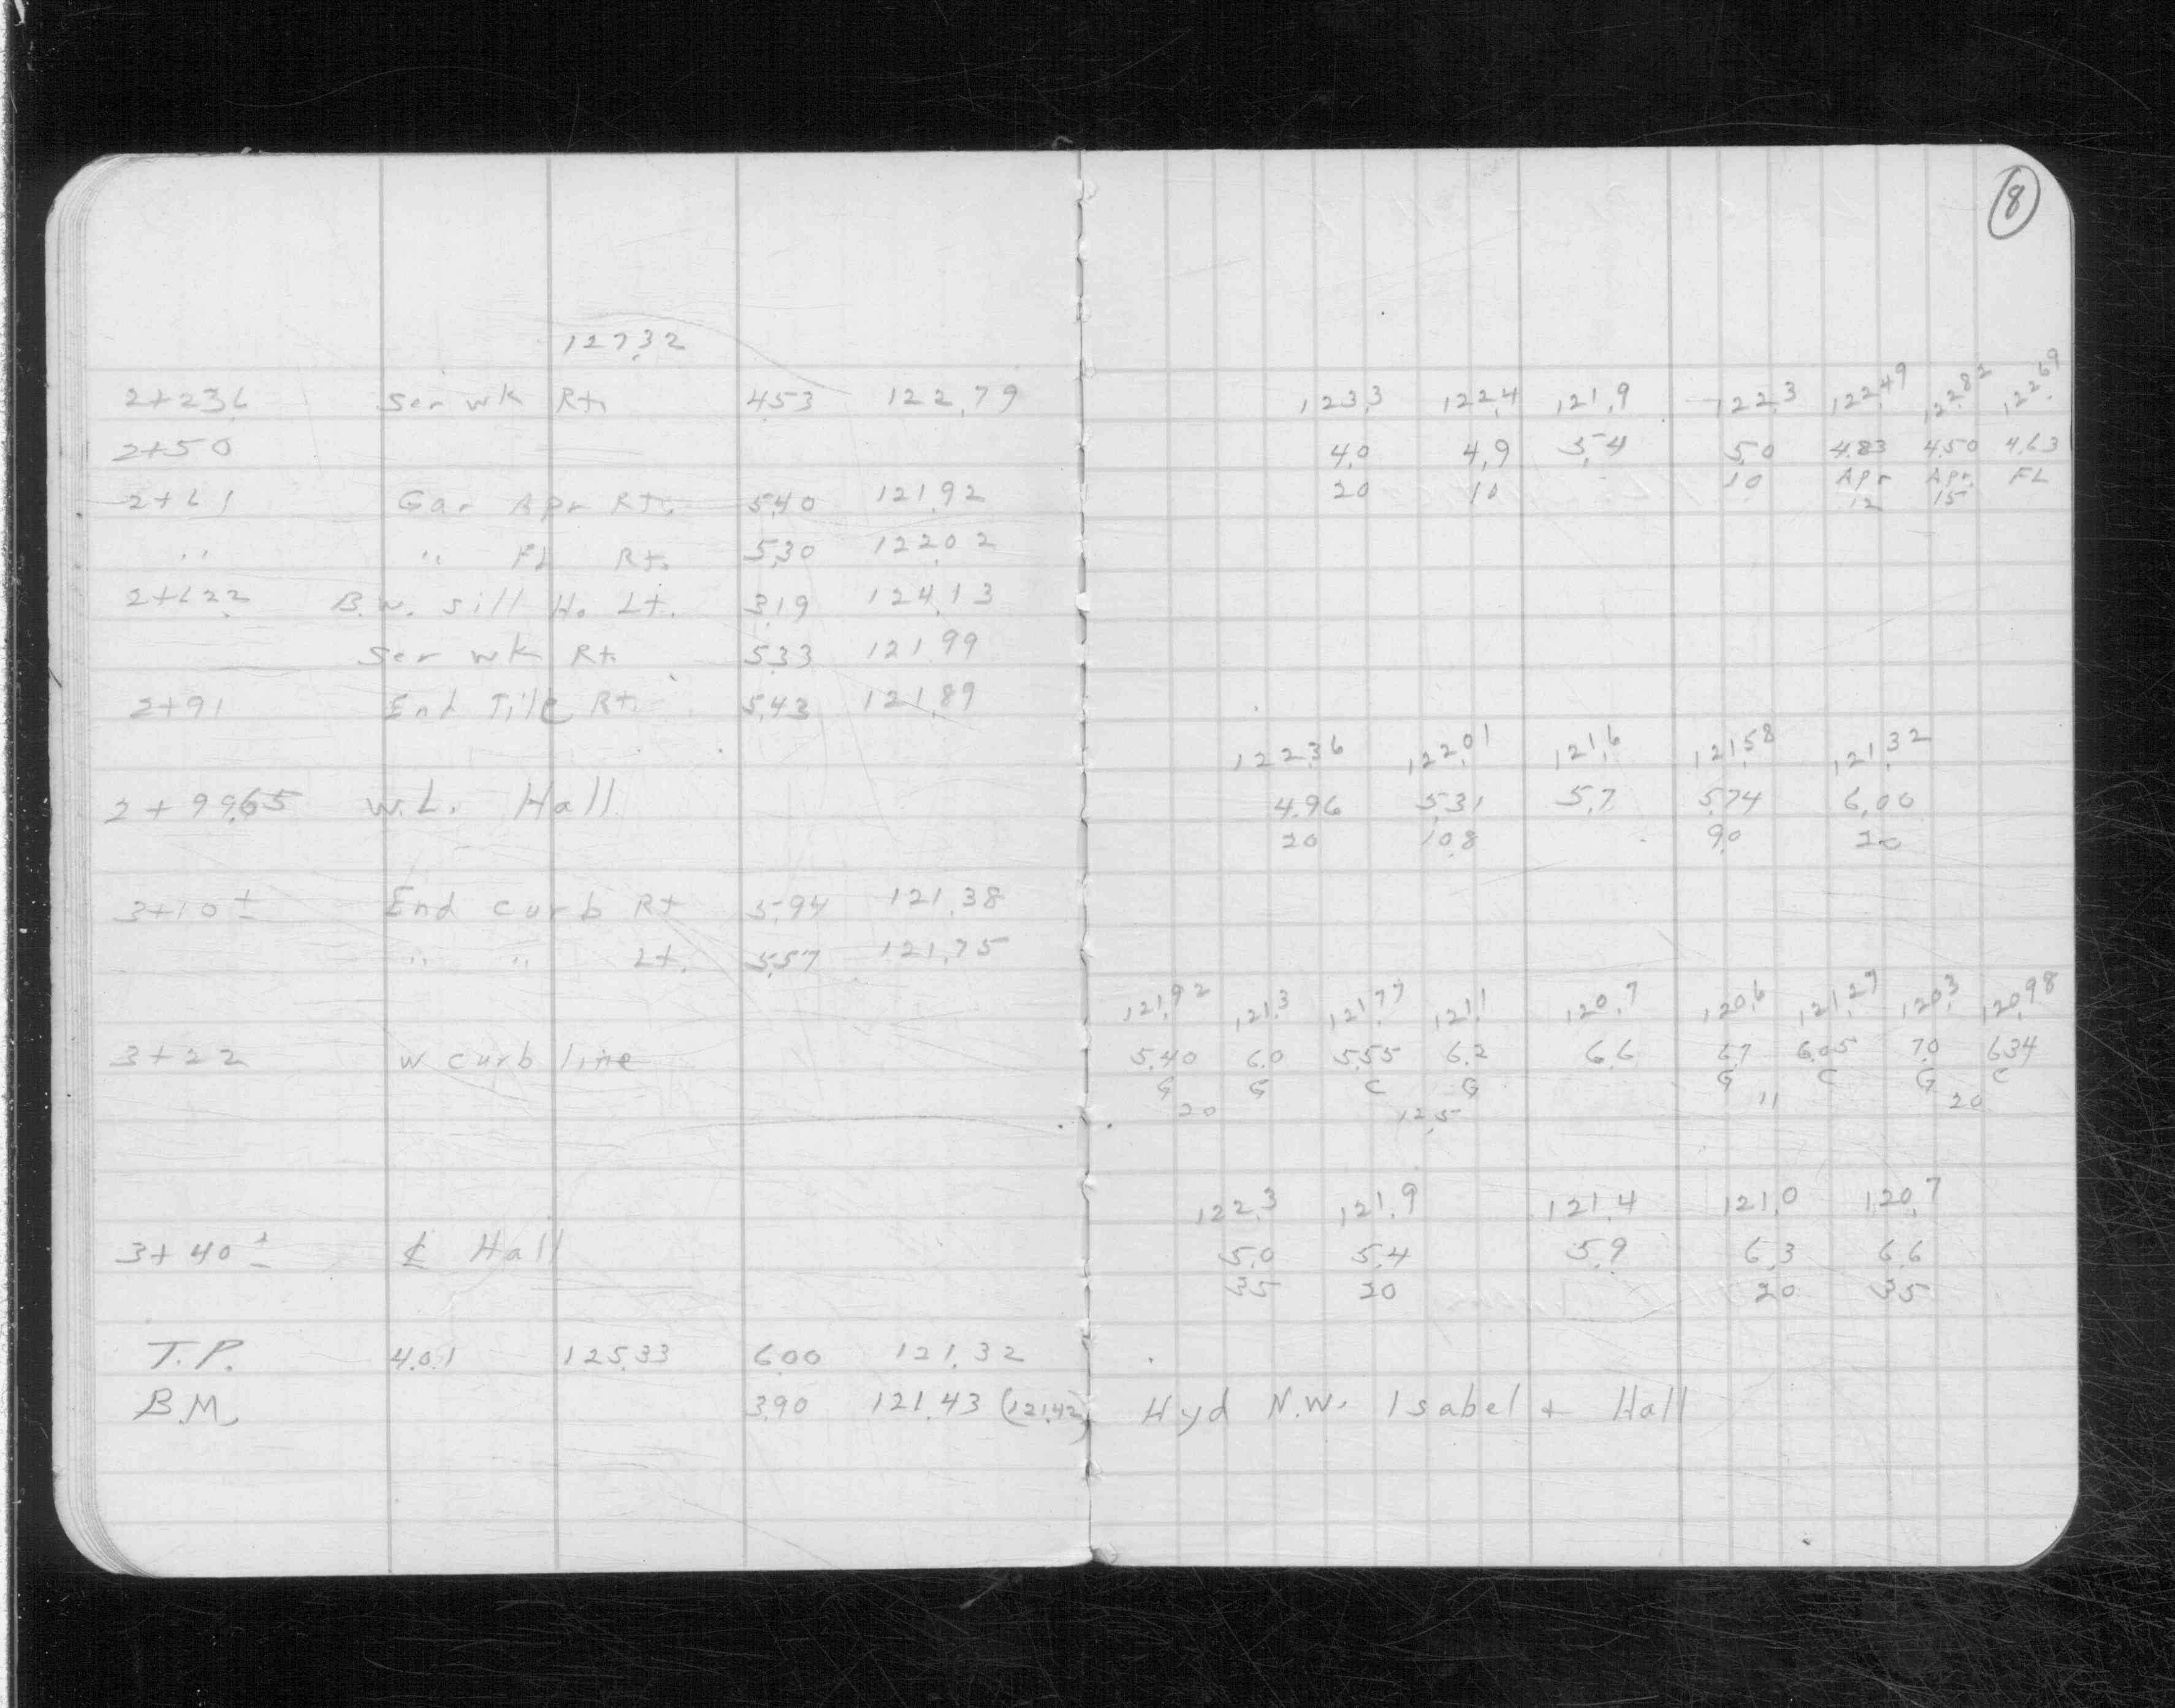 8
127.32
2+23.6 Ser wk Rt. 4.53 122.79
123.3 122.4 121.9 122.3 122.49 122.82 122.69
2+50
4.0 4.9 5.4 5.0 4.83 4.50 4.63
20 10 10 Apr Apr. FL
12 15
2+61 Gar Apr Rt. 5.40 121.92
" " FL Rt. 5.30 122.02
2+62.2 B.W. sill Ho. Lt. 3.19 124.13
Ser wk Rt. 5.33 121.99
2+91 End Tile Rt. 5.43 121.89
122.36 122.01 121.6 121.58 121.32
2+99.65 W.L. Hall
4.96 5.31 5.7 5.74 6.00
20 10.8 9.0 20
3+10± End curb Rt 5.94 121.38
" " Lt. 5.57 121.75
121.92 121.3 121.77 121.1 120.7 120.6 121.27 120.3 120.98
3+22 W curb line
5.40 6.0 5.55 6.2 6.6 6.7 6.05 7.0 6.34
G G C G G C G C
20 12.5 11 20
122.3 121.9 121.4 121.0 120.7
3+40± ℄ Hall
5.0 5.4 5.9 6.3 6.6
35 20 20 35
T.P. 4.01 125.33 6.00 121.32
B.M. 3.90 121.43 (121.42) Hyd N.W. Isabel + Hall